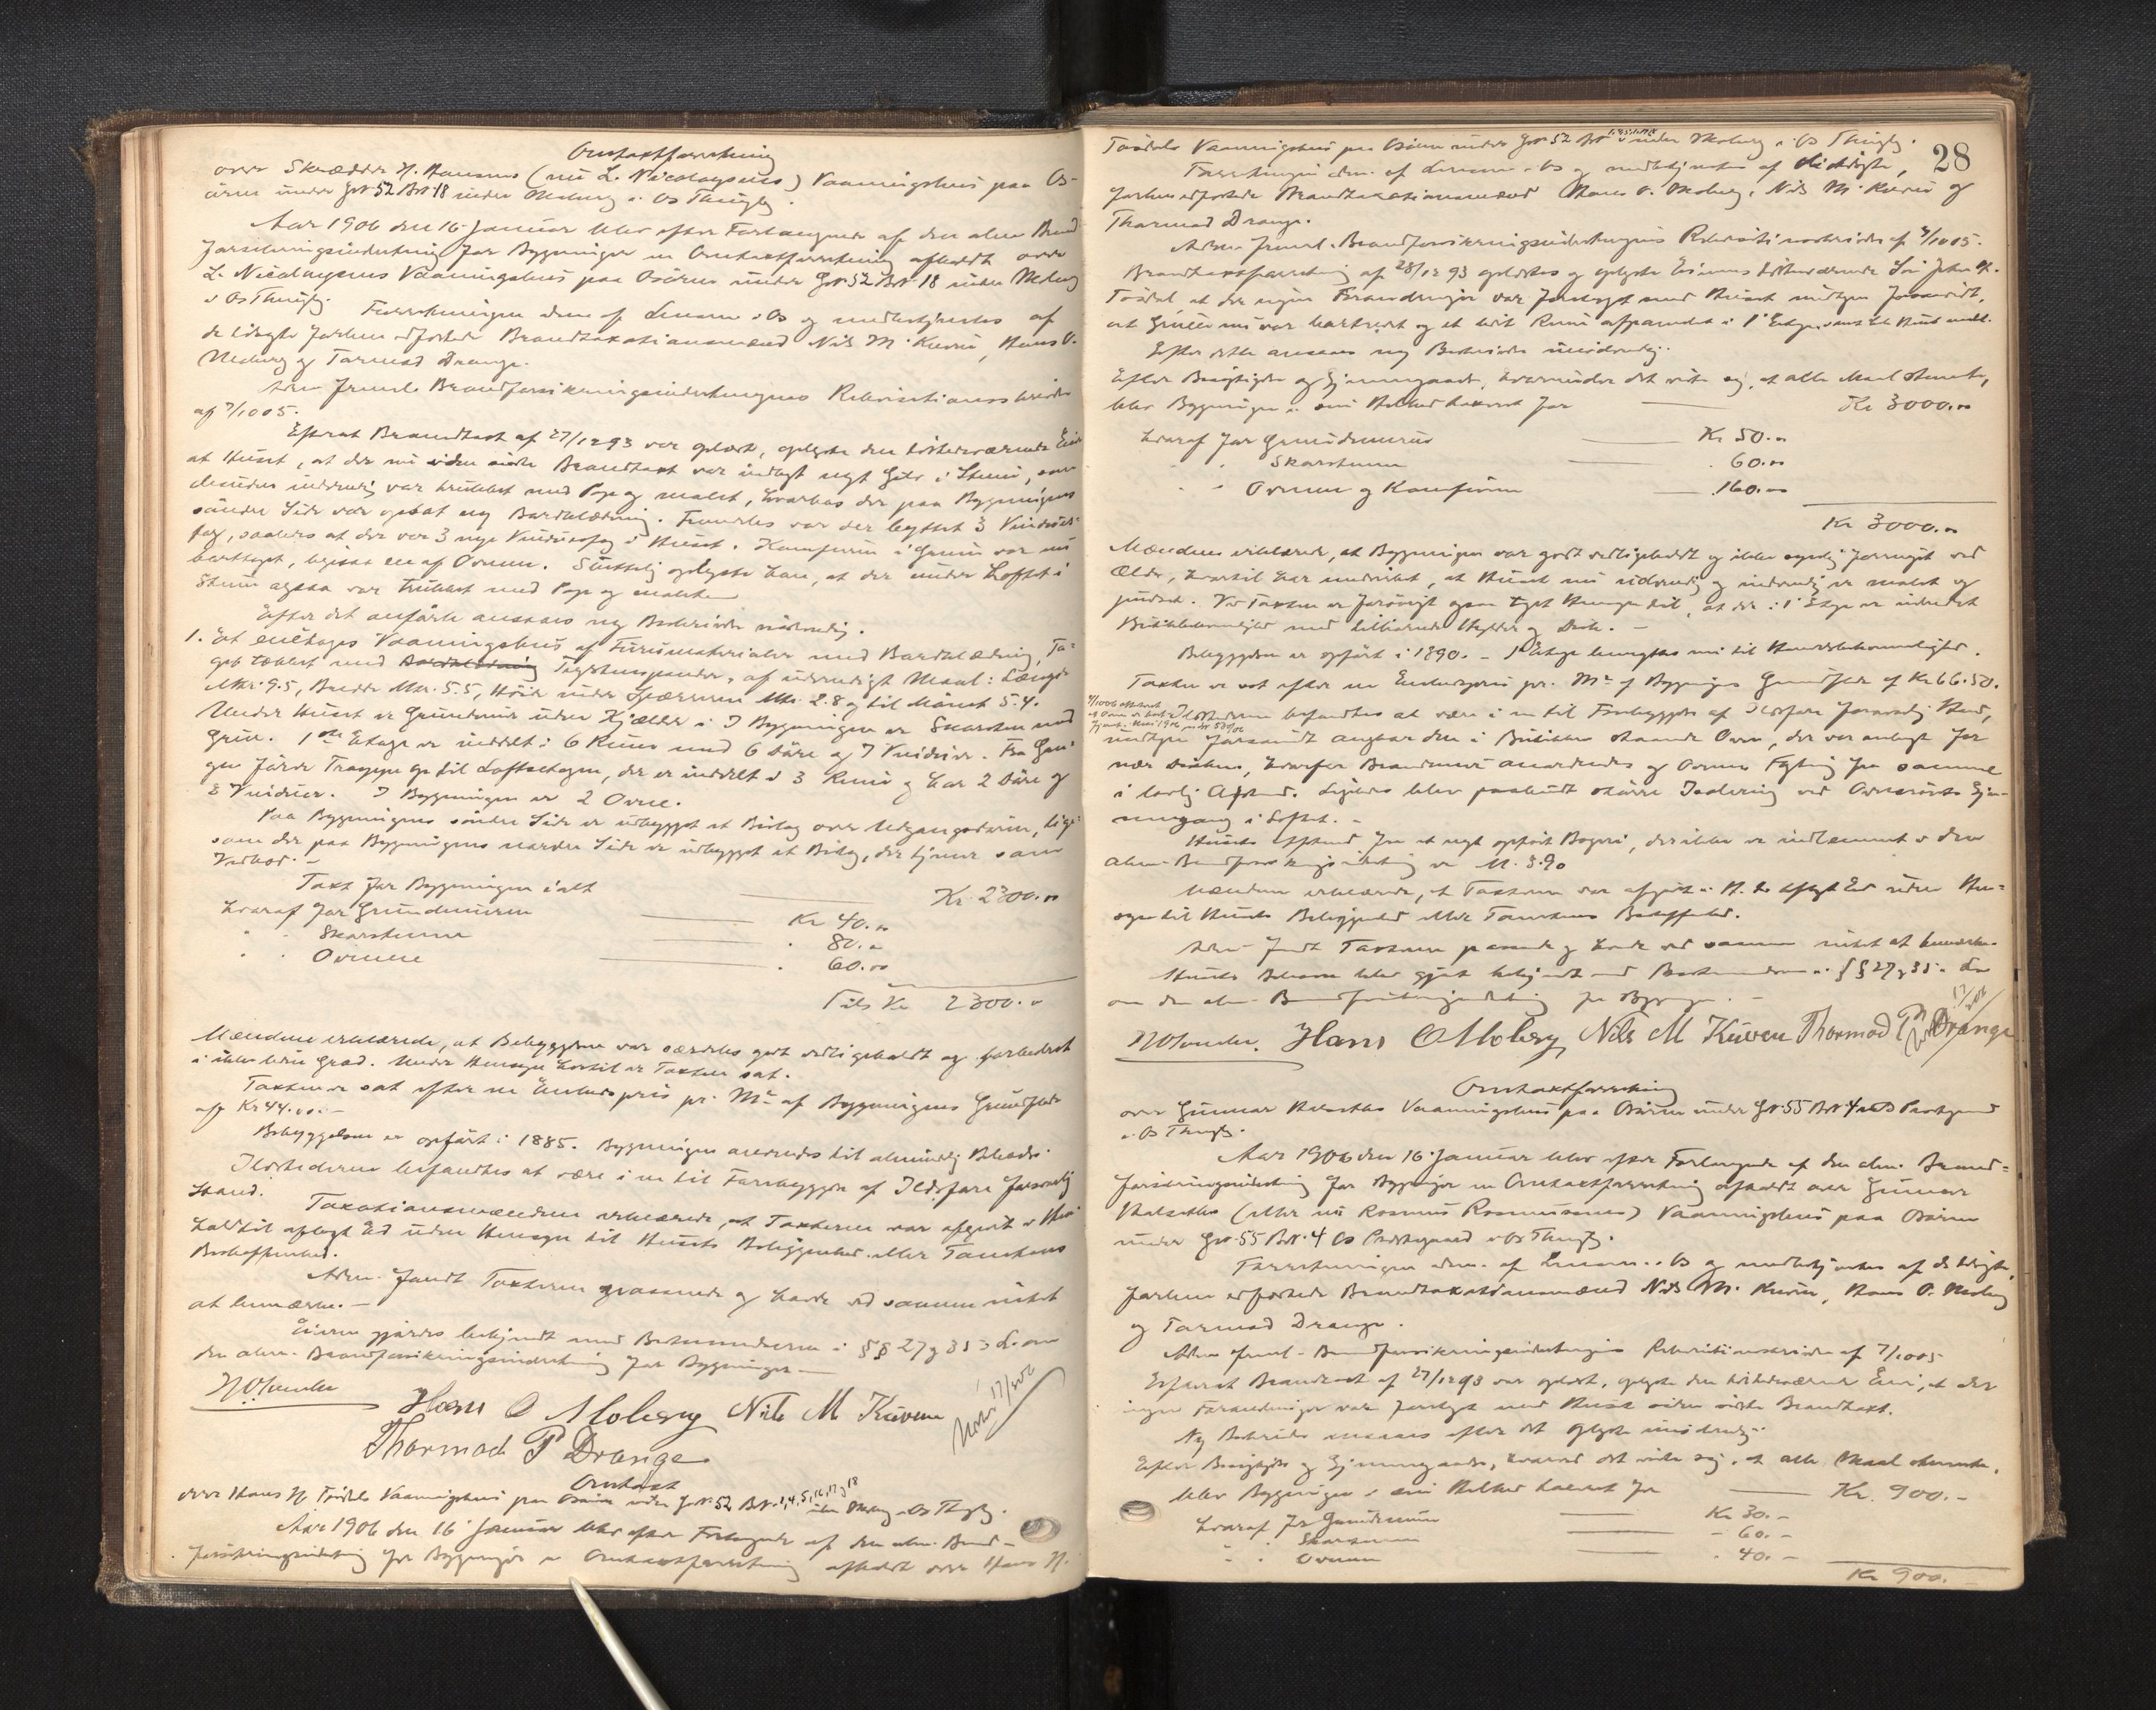 Omtaxtforretning
over Skrædder H. Hansens (nu L. Nicolaysens) Vaaningshus paa Os-
øren under Gr.№ 52 Br.№ 18 indre Moberg i Os Thinglg.
Aar 1906 den 16 Januar blev efter Forlangende af den alm. Brand
forsikringsindretning for Bygninger en Omtaxtforretning afholdt over
L. Nicolaysens Vaaningshus paa Osøren under Gr.№ 52 Br.№ 18 indre Moberg
i Os Thinglg. Forretningen adm. af Lensm. i Os og medbetjentes af
de lovligste forhen edfæstede Brandtaxationsmænd Nils M. Kuven, Hans O.
Moberg og Tormod Drange.
Adm. freml. Brandforsikringsindretningens Rekvisitionsskrivelse
af 7/10 05.
Efterat Brandtaxt af 27/12 93 var oplæst, oplyste den tilstedeværende Eier
at Huset, at der nu siden sidste Brandtaxt var indlagt nyt Gulv i Stuen, som
desuden indvendig var trukket med Pap og malet, hvorhos der paa Bygningens
søndre Side var opsat ny Bordklædning. Fremdeles var der bygget 3 Vindues-
fag, saaledes at der var 3 nye Vinduesfag i Huset. Komfuren i Gruen var nu
borttaget, ligesaa en af Ovnene. Sluttelig oplyste han, at der under Loftet i
Stuen ogsaa var trukket med Pap og malet.
Efter det anførte ansaaes ny Beskrivelse nødvendig.
1. Et enetages Vaaningshus af Furumaterialer med Bordklædning, Ta-
get tækket med Bordklædning Tegelstenspander, af udvendigt Maal: Længde
Mtr. 9.5, Bredde Mtr. 5.5, Høide under Sparrerne Mtr. 2.8 og til Mønet 5.4.
Under Huset er Grundmur uden Kjælder. I Bygningen er Skorsten med
Grue. 1ste Etage er inddelt i 6 Rum med 6 Døre og 7 Vinduer. Fra Gan-
gen fører Trappe op til Loftsetagen, der er inddelt i 3 Rum og har 2 Døre og
3 Vinduer. I Bygningen er 2 Ovne.
Paa Bygningens søndre Side er udbygget et Bislag over Udgangsdøren, lige-
som der paa Bygningens nordre Side er udbygget et Bislag, der tjener som
Vedbod. –
Taxt for Bygningen ialt Kr. 2300.00
hvoraf for Grundmuren Kr 40.00
" " Skorstenen " 80.00
" " Ovnene " 60.00
Tils Kr 2300.00
Mændene erklærede, at Bebyggelsen var særdeles godt vedligeholdt og forbedret
i ikke liden Grad. Under Hensyn hertil er Taxten sat.
Taxten er sat efter en Enhedspris pr. M² af Bygningens Grundflade
af Kr 44.00. –
Bebyggelsen er opført i 1885. Bygningen anvendes til almindelig Beboelse.
Ildstederne befandtes at være i en til Forebyggelse af Ildsfare forsvarlig
Stand.
Taxationsmændene erklærede, at Taxterne var afgivet i Hen-
hold til aflagt Ed uden Hensyn til Husets Beliggenhed eller Tomtens
Beskaffenhed.
Adm. fandt Taxterne passende og havde ved samme intet
at bemærke. –
Eieren gjordes bekjendt med Bestemmelserne i §§ 27 og 35 i L. om
den alm. Brandforsikringsindretning for Bygninger. –
Hans O Moberg Nils M Kuven
Thormod P Drange
17/1 06
Omtaxt
over Hans H. Tøsdals Vaaningshus paa Osøren under Gr.№ 52 Br.№ 1,4,5,16,17 og 18 indre Moberg i Os Thinglg.
Aar 1906 den 16 Januar blev efter Forlangende af den alm. Brand-
forsikringsindretning for Bygninger en Omtaxtforretning afholdt over Hans H.
28
Tøsdals Vaaningshus paa Osøren under Gr.№ 52 Br.№ indre Moberg i Os Thinglg.
Forretningen adm. af Lensm. i Os og medbetjentes af de lovligste,
forhen edfæstede Brandtaxationsmænd Hans O. Moberg, Nils M. Kuven og
Thormod Drange.
Adm. freml. Brandforsikringsindretningens Rekvisitionsskrivelse af 7/10 05.
Brandtaxtforretning af 28/12 93 oplæstes og oplyste Eierens tilstedeværende Søn John H.
Tøsdal at der ingen Forandringer var foretaget med Huset undtagen forsaavidt,
at Gruen nu var borttaget og et lidet Rum afpanelet i 1 Etage, samt hele Huset malt.
Efter dette ansaaes ny Beskrivelse unødvendig.
Efter Besigtigelse og Gjennemgaaelse, hvorunder det viste sig, at alle Maal stemte,
blev Bygningen i sin Helhed taxeret for Kr 3000.00
hvoraf for Grundmuren Kr 50.00
" " Skorstenen " 60.00
" " Ovnene og Komfuren " 160.00
Kr 3000.00
Mændene erklærede, at Bygningen var godt vedligeholdt og ikke synderlig forringet ved
Ælde, hvortil har medvirket, at Huset nu udvendig og indvendig er malet og
pudset. Ved Taxten er forøvrigt ogsaa taget Hensyn til, at der i 1 Etage er indredet
Butiklokaliteter med tilhørende Hylder og Disk. –
Bebyggelsen er opført i 1890. – 1 Etage benyttes nu til Handelslokaliteter.
Taxten er sat efter en Enhedspris pr. M² af Bygningens Grundflade af Kr 66.50.
Ildstederne befandtes at være i en til Forebyggelse af Ildsfare forsvarlig Stand,
undtagen forsaavidt angaar den i Butikken staaende Ovn, der var anbragt for
nær Disken, hvorfor Brandmur anordnedes og Ovnens Flytning fra samme
i lovlig Afstand. Ligeledes blev paabudt større Isolering ved Ovnsrørets Gjen-
nemgang i Loftet. –
Husets Afstand fra et nyt opført Bageri, der ikke er indlemmet i den
alm. Brandforsikringsindretning er M. 3.90
Mændene erklærede, at Taxterne var afgivet i H. t. aflagt Ed uden Hen-
syn til Husets Beliggenhed eller Tomtens Beskaffenhed.
Adm. fandt Taxterne passende og havde ved samme intet at bemærke.
Husets Eier blev gjort bekjendt med Bestemmelserne i §§ 27 og 35 i L.
om den alm. Brandforsikringsindretning for Bygninger. –
Hans O Moberg Nils M Kuven Thormod P Drange
17/1 06
Omtaxtforretning
over Gunnar Vaaningshus paa Osøren under Gr.№ 55 Br.№ 4 Os Præstegaard
i Os Thinglg.
Aar 1906 den 16 Januar blev efter Forlangende af den alm. Brand-
forsikringsindretning for Bygninger en Omtaxtforretning afholdt over Gunnar
(eller nu Rasmus Rasmussens) Vaaningshus paa Osøren
under Gr.№ 55 Br.№ 4 Os Præstegaard i Os Thinglg.
Forretningen adm. af Lensm. i Os og medbetjentes af de lovligste,
forhen edfæstede Brandtaxationsmænd Nils M. Kuven, Hans O. Moberg
og Tormod Drange.
Adm. freml. Brandforsikringsindretningens Rekvisitionsskrivelse af 7/10 05
Efterat Brandtaxt af 27/12 93 var oplæst, oplyste den tilstedeværende Eier, at der
ingen Forandringer var foretaget med Huset siden sidste Brandtaxt.
Ny Beskrivelse ansaaes efter det oplyste unødvendig.
Efter Besigtigelse og Gjennemgaaelse, hvorved det viste sig, at alle Maal stemte,
blev Bygningen i sin Helhed taxeret for Kr. 900.–
hvoraf for Grundmuren Kr 30.–
" " Skorstenen – 60.–
" " Ovnen " 40.–
Kr 900.–